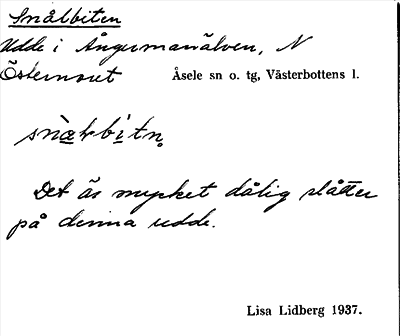 Snålbiten
Udde i Ångermanälven, N
Östernout Åsele sn o. tg, Västerbottens l.
Det är mycket dålig slåtter
på denna udde.
Lisa Lidberg 1937.